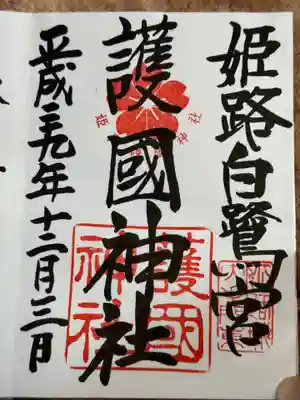 姫路白鷺宮
護國神社
平成二九年十二月三日
護國
神社